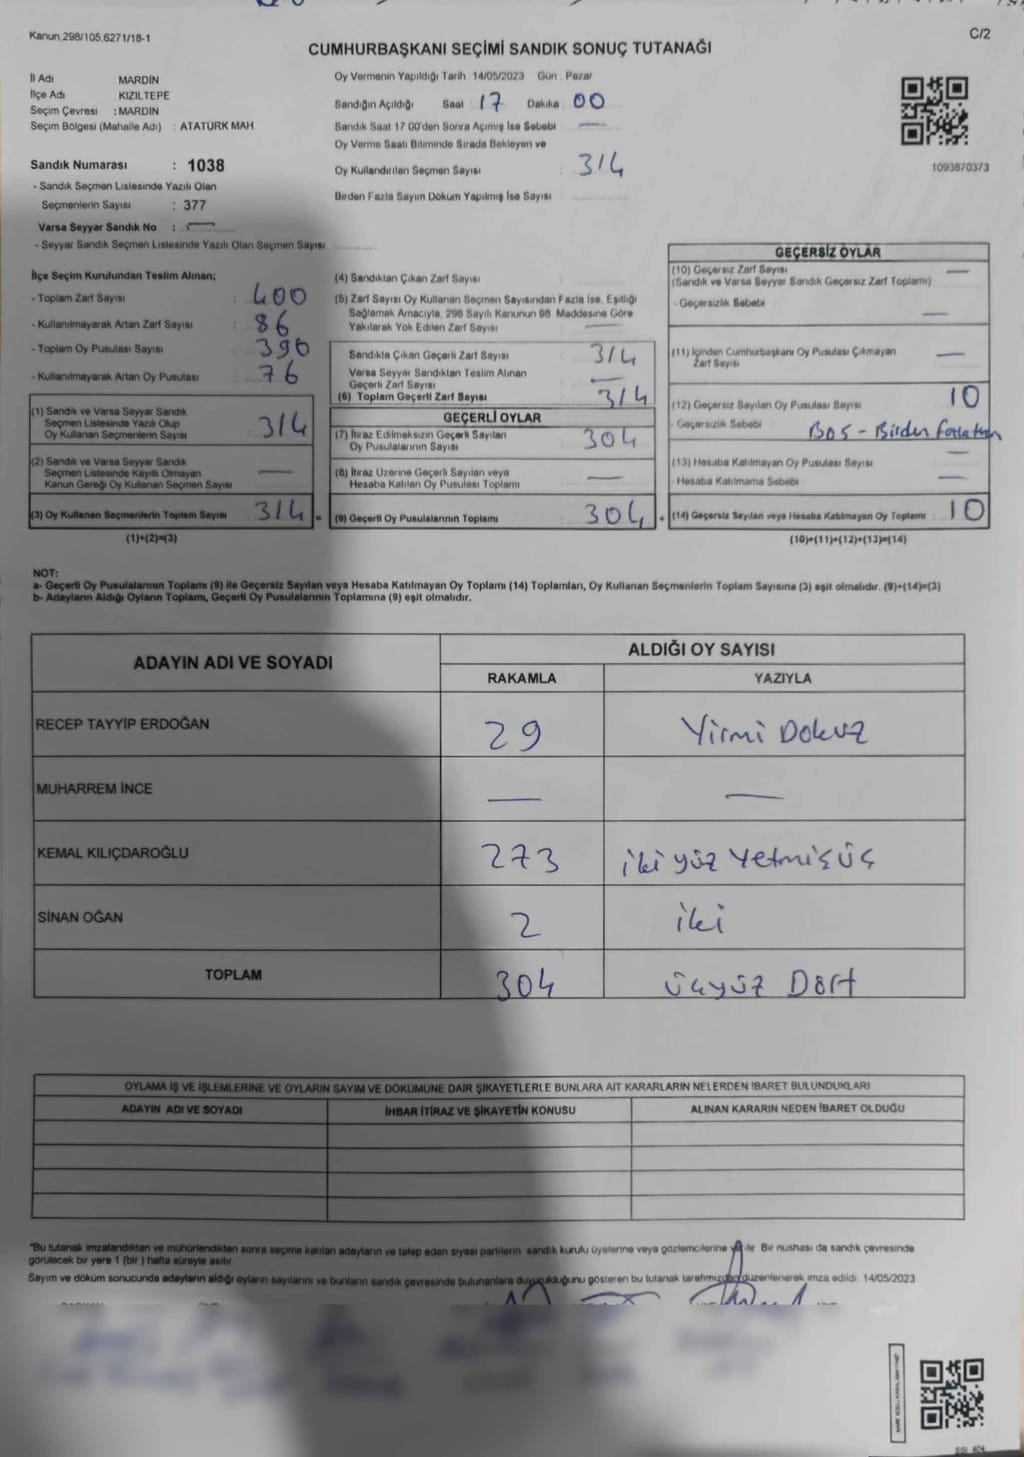 Kanun.298/105,6271/18-1
C/2
CUMHURBAŞKANI SEÇİMİ SANDIK SONUÇ TUTANAĞI
İl Adı : MARDİN
İlçe Adı : KIZILTEPE
Seçim Çevresi : MARDİN
Seçim Bölgesi (Mahalle Adı) : ATATÜRK MAH.
Sandık Numarası : 1038
- Sandık Seçmen Listesinde Yazılı Olan
Seçmenlerin Sayısı : 377
Varsa Seyyar Sandık No : —
- Seyyar Sandık Seçmen Listesinde Yazılı Olan Seçmen Sayısı
Oy Vermenin Yapıldığı Tarih 14/05/2023 Gün : Pazar
Sandığın Açıldığı Saat 17 Dakika 00
Sandık Saat 17 00'den Sonra Açımış İse Sebebi : —
Oy Verme Saati Bitiminde Sırada Bekleyen ve
Oy Kullandırılan Seçmen Sayısı : 314
Birden Fazla Sayım Döküm Yapılmış İse Sayısı :
1093870373
İlçe Seçim Kurulundan Teslim Alınan;
- Toplam Zarf Sayısı : 400
- Kullanılmayarak Artan Zarf Sayısı : 86
- Toplam Oy Pusulası Sayısı : 390
- Kullanılmayarak Artan Oy Pusulası : 76
(1) Sandık ve Varsa Seyyar Sandık
Seçmen Listesinde Yazılı Olup
Oy Kullanan Seçmenlerin Sayısı 314
(2) Sandık ve Varsa Seyyar Sandık
Seçmen Listesinde Kayıtlı Olmayan
Kanun Gereği Oy Kullanan Seçmen Sayısı —
(3) Oy Kullanan Seçmenlerin Toplam Sayısı 314 =
(1)+(2)=(3)
(4) Sandıktan Çıkan Zarf Sayısı :
(5) Zarf Sayısı Oy Kullanan Seçmen Sayısından Fazla İse, Eşitliği
Sağlamak Amacıyla, 298 Sayılı Kanunun 98. Maddesine Göre
Yakılarak Yok Edilen Zarf Sayısı —
Sandıkta Çıkan Geçerli Zarf Sayısı 314
Varsa Seyyar Sandıktan Teslim Alınan
Geçerli Zarf Sayısı —
(6) Toplam Geçerli Zarf Sayısı 314
GEÇERLİ OYLAR
(7) İtiraz Edilmeksizin Geçerli Sayılan
Oy Pusulalarının Sayısı 304
(8) İtiraz Üzerine Geçerli Sayılan veya
Hesaba Katılan Oy Pusulası Toplamı —
(9) Geçerli Oy Pusulalarının Toplamı 304 +
GEÇERSİZ OYLAR
(10) Geçersiz Zarf Sayısı —
(Sandık ve Varsa Seyyar Sandık Geçersiz Zarf Toplamı)
- Geçersizlik Sebebi —
(11) İçinden Cumhurbaşkanı Oy Pusulası Çıkmayan
Zarf Sayısı —
(12) Geçersiz Sayılan Oy Pusulası Sayısı 10
- Geçersizlik Sebebi BOŞ - Birden fazla
(13) Hesaba Katılmayan Oy Pusulası Sayısı —
- Hesaba Katılmama Sebebi —
(14) Geçersiz Sayılan veya Hesaba Katılmayan Oy Toplamı : 10
(10)+(11)+(12)+(13)=(14)
NOT:
a- Geçerli Oy Pusulalarının Toplamı (9) ile Geçersiz Sayılan veya Hesaba Katılmayan Oy Toplamı (14) Toplamları, Oy Kullanan Seçmenlerin Toplam Sayısına (3) eşit olmalıdır. (9)+(14)=(3)
b- Adayların Aldığı Oyların Toplamı, Geçerli Oy Pusulalarının Toplamına (9) eşit olmalıdır.
ADAYIN ADI VE SOYADI
ALDIĞI OY SAYISI
RAKAMLA YAZIYLA
RECEP TAYYİP ERDOĞAN 29 Yirmi Dokuz
MUHARREM İNCE — —
KEMAL KILIÇDAROĞLU 273 iki yüz Yetmişüç
SİNAN OĞAN 2 iki
TOPLAM 304 üçyüz Dört
OYLAMA İŞ VE İŞLEMLERİNE VE OYLARIN SAYIM VE DÖKÜMÜNE DAİR ŞİKAYETLERLE BUNLARA AİT KARARLARIN NELERDEN İBARET BULUNDUKLARI
ADAYIN ADI VE SOYADI İHBAR İTİRAZ VE ŞİKAYETİN KONUSU ALINAN KARARIN NEDEN İBARET OLDUĞU
"Bu tutanak imzalandıktan ve mühürlendikten sonra seçime katılan adayların ve talep eden siyasi partilerin sandık kurulu üyelerine veya gözlemcilerine verilir. Bir nüshası da sandık çevresinde
görülecek bir yere 1 (bir ) hafta süreyle asılır
Sayım ve döküm sonucunda adayların aldığı oyların sayılarını ve bunların sandık çevresinde bulunanlara duyurulduğunu gösteren bu tutanak tarafımızdan düzenlenerek imza edildi. 14/05/2023